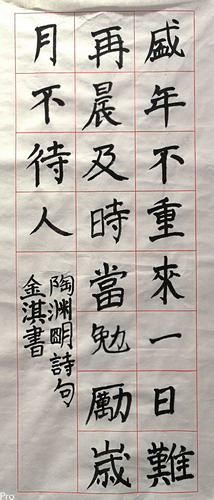 盛年不重來一日難
再晨及時當勉勵歲
月不待人
陶渊明詩句
金淇書
Pro